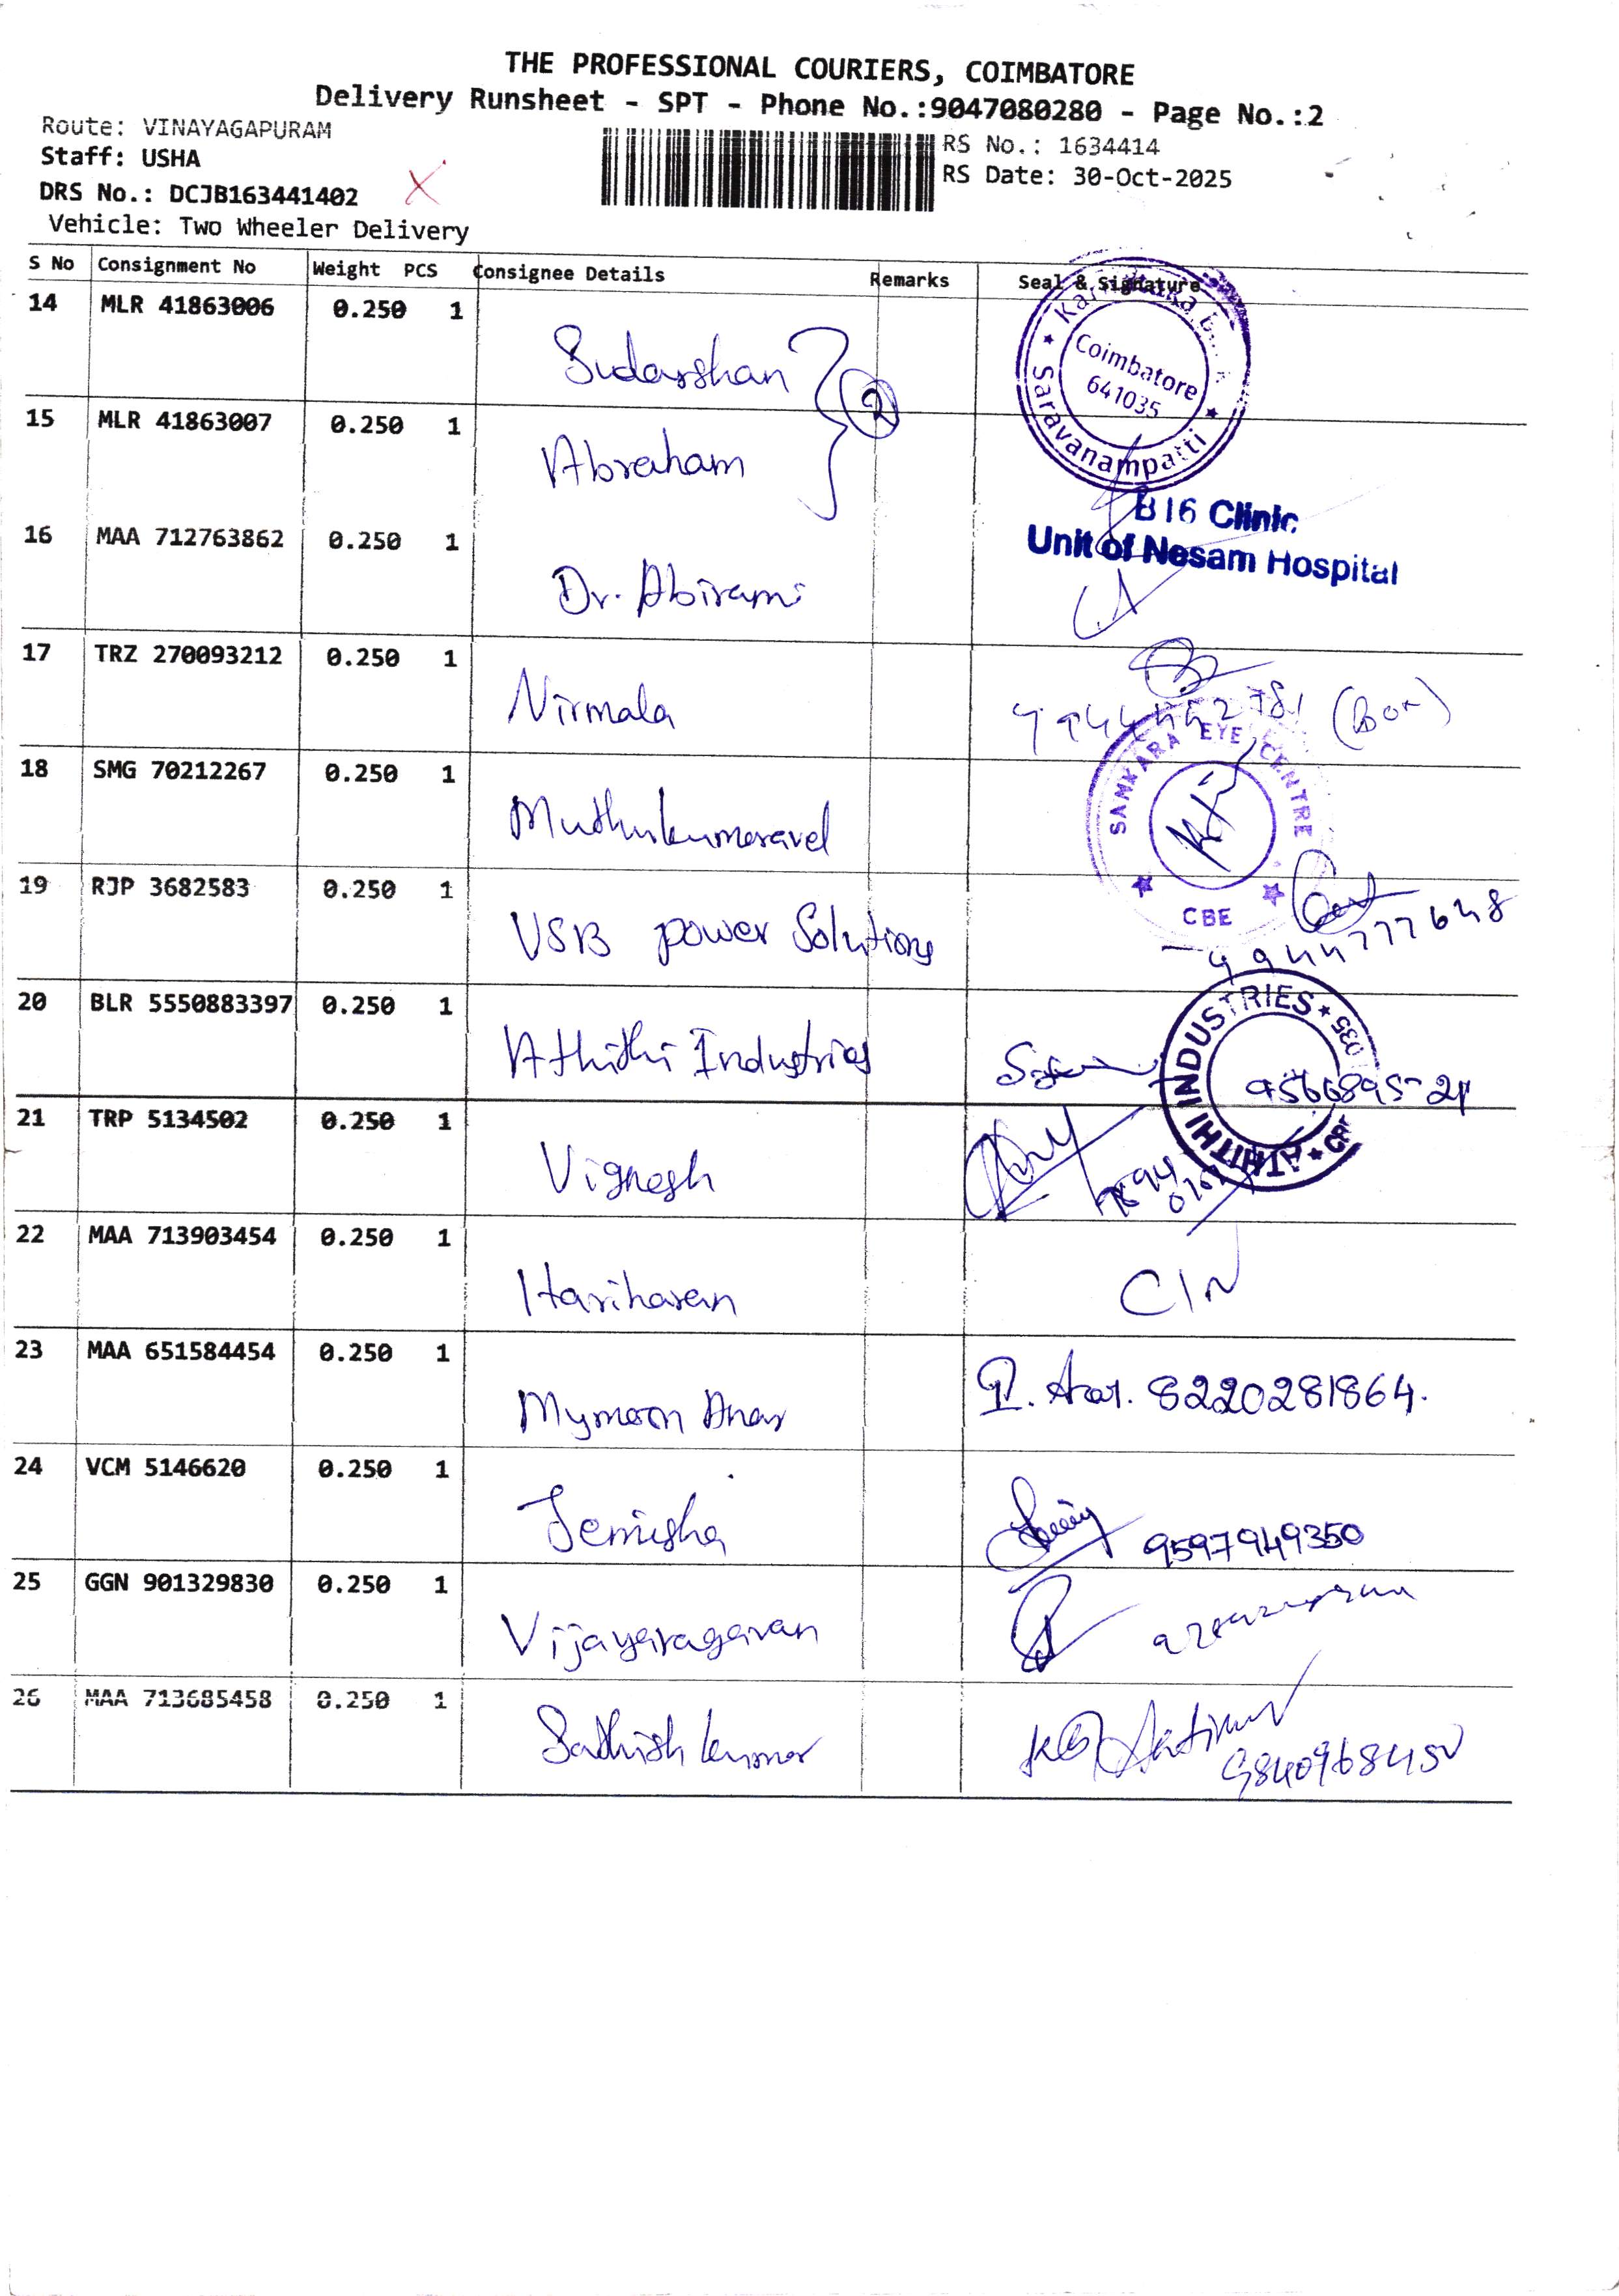 THE PROFESSIONAL COURIERS, COIMBATORE
Delivery Runsheet - SPT - Phone No.:9047080280 - Page No.:2
Route: VINAYAGAPURAM
Staff: USHA
DRS No.: DCJB163441402
Vehicle: Two Wheeler Delivery
RS No.: 1634414
RS Date: 30-Oct-2025
S No Consignment No Weight PCS Consignee Details Remarks Seal & Signature
14 MLR 41863006 0.250 1
Sudarshan
2
Coimbatore
641035
Saravanampatti
15 MLR 41863007 0.250 1
Abraham
B16 Clinic
Unit of Nesam Hospital
16 MAA 712763862 0.250 1
Dr. Abirami
17 TRZ 270093212 0.250 1
Nirmala
18 SMG 70212267 0.250 1
Muthukumaravel
SAMKARA EYE CENTRE
CBE
19 RJP 3682583 0.250 1
VSB power Solutions
9944777648
20 BLR 5550883397 0.250 1
Athithi Industries
ATHITHI INDUSTRIES
21 TRP 5134502 0.250 1
Vignesh
22 MAA 713903454 0.250 1
Hariharan
CIN
23 MAA 651584454 0.250 1
Mymoon
8220281864.
24 VCM 5146620 0.250 1
Jemisha
9597949350
25 GGN 901329830 0.250 1
Vijayaragavan
26 MAA 713685458 0.250 1
Sathish kumar